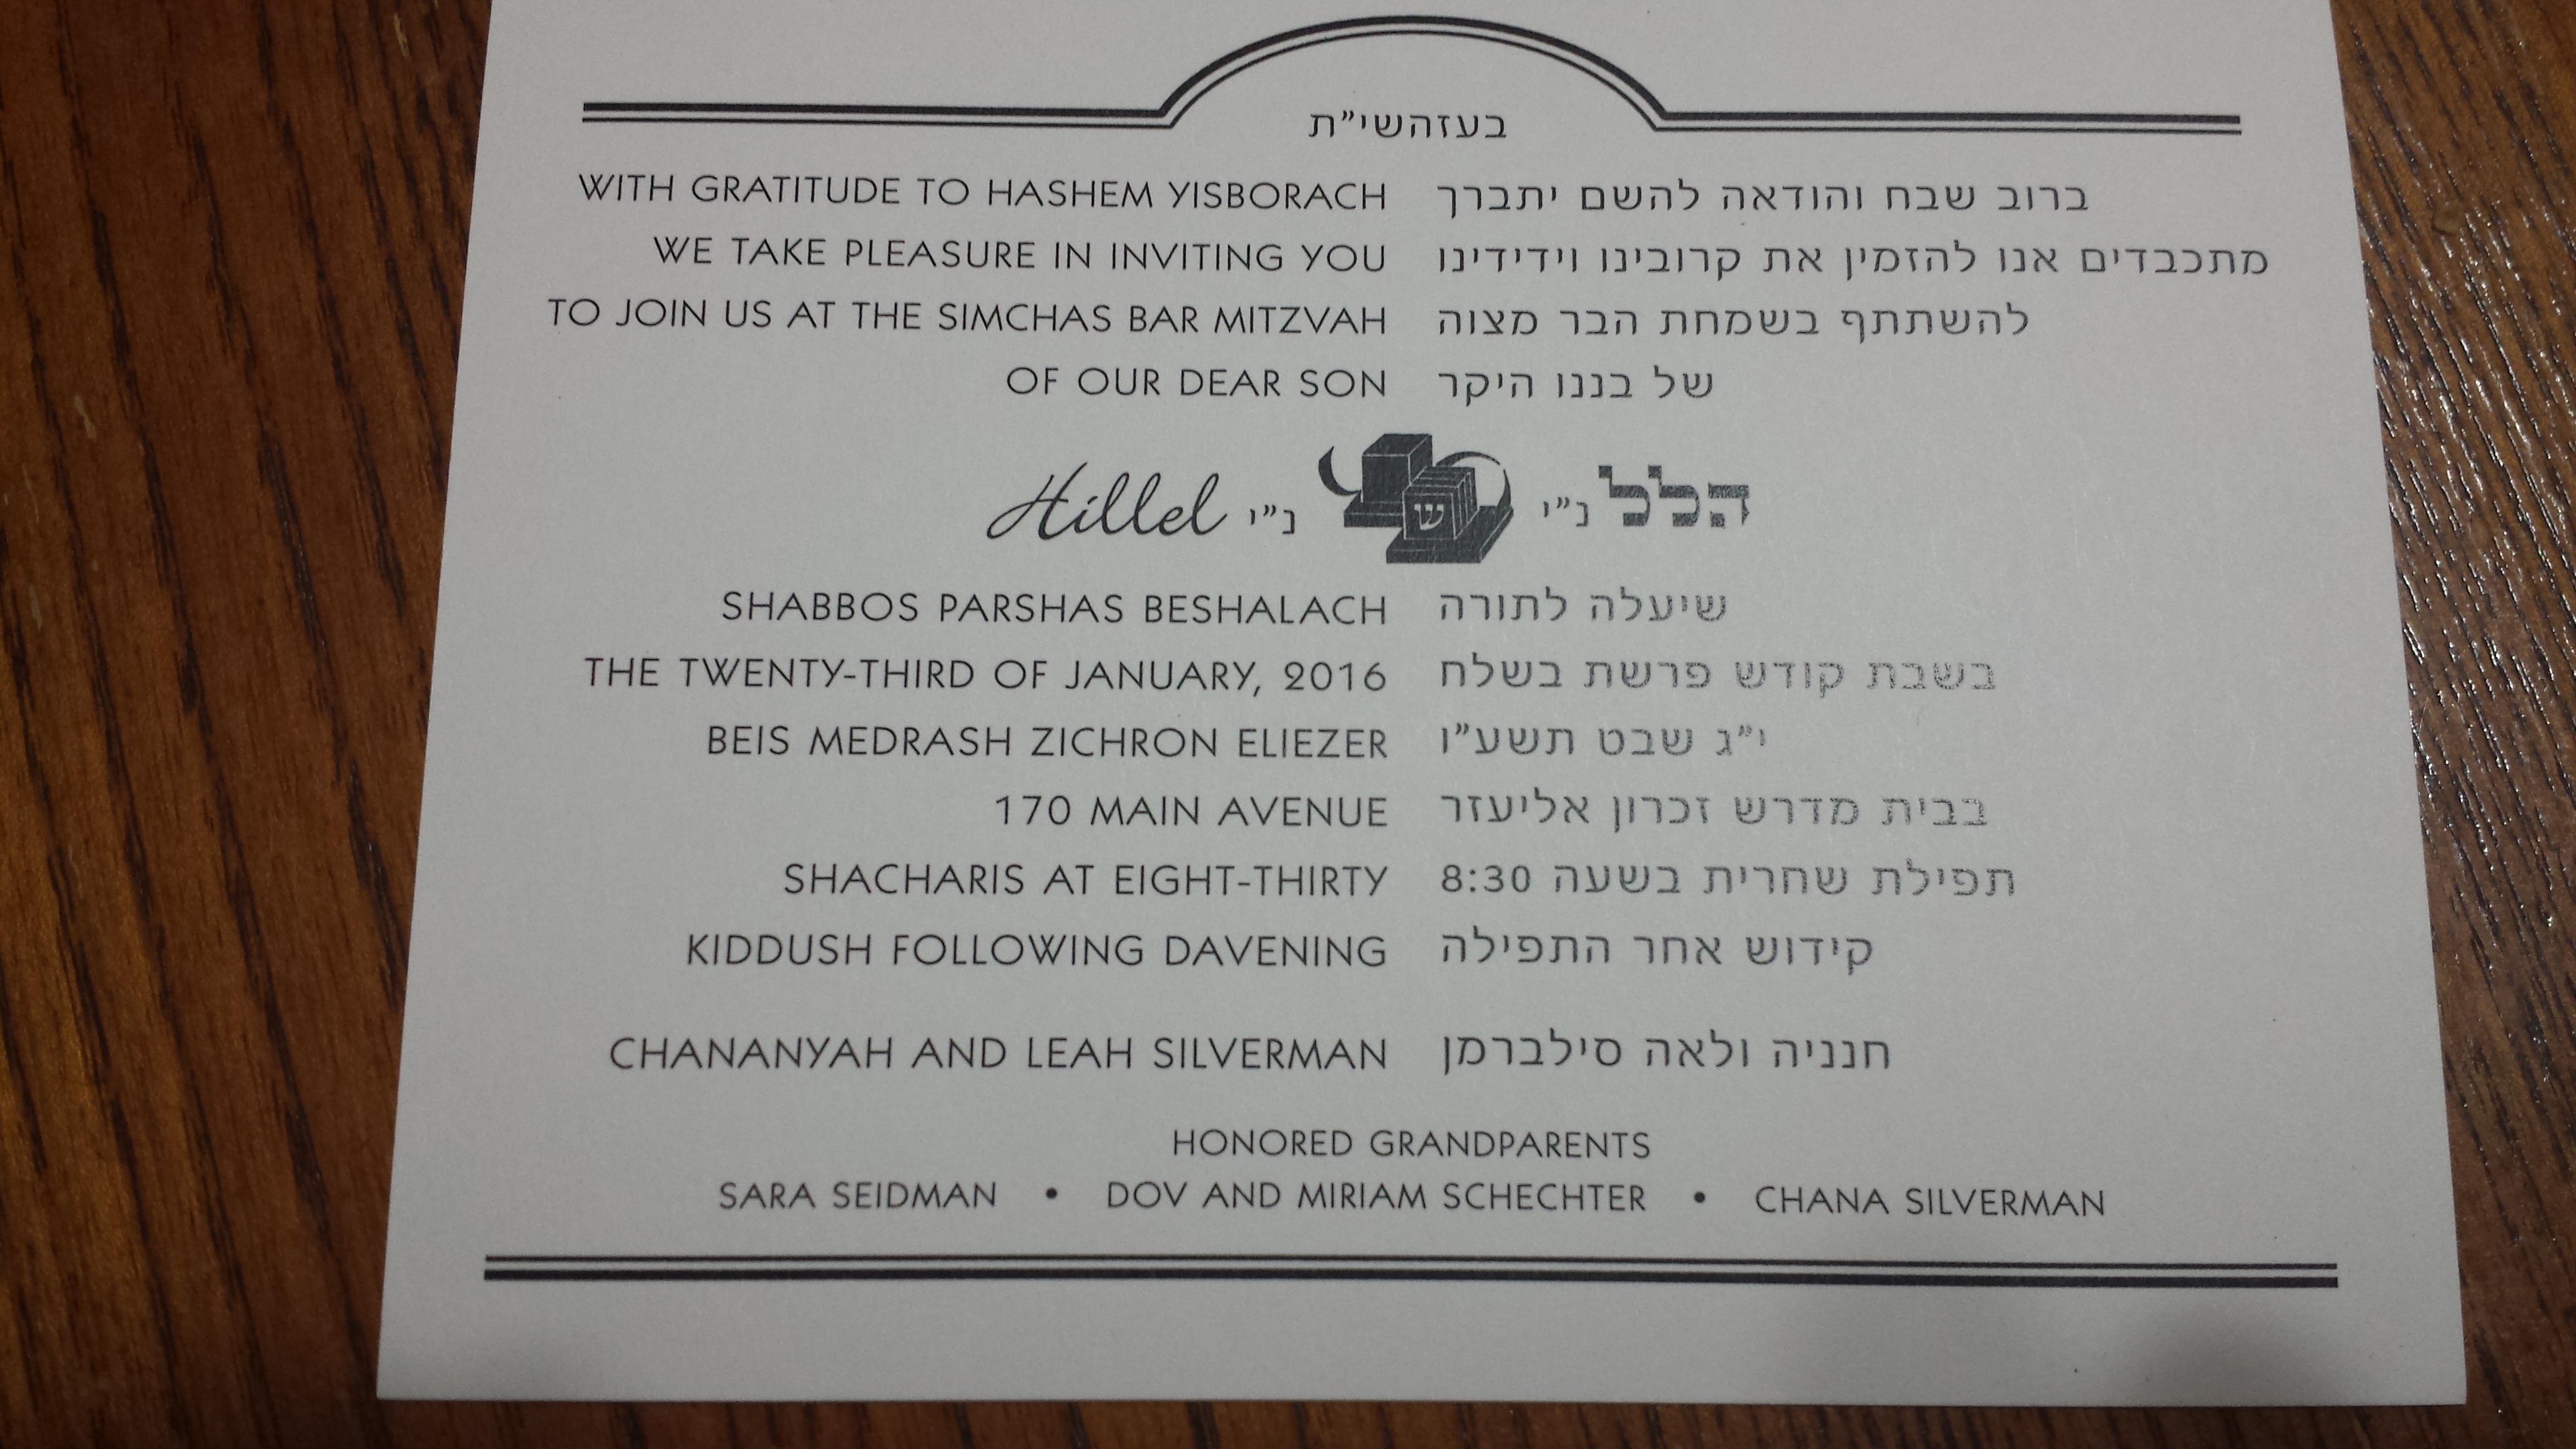 בעזהשי"ת
WITH GRATITUDE TO HASHEM YISBORACH
WE TAKE PLEASURE IN INVITING YOU
TO JOIN US AT THE SIMCHAS BAR MITZVAH
OF OUR DEAR SON
Hillel נ"י
SHABBOS PARSHAS BESHALACH
THE TWENTY-THIRD OF JANUARY, 2016
BEIS MEDRASH ZICHRON ELIEZER
170 MAIN AVENUE
SHACHARIS AT EIGHT-THIRTY
KIDDUSH FOLLOWING DAVENING
CHANANYAH AND LEAH SILVERMAN
ברוב שבח והודאה להשם יתברך
מתכבדים אנו להזמין את קרובינו וידידינו
להשתתף בשמחת הבר מצוה
של בננו היקר
ש
הלל נ"י
שיעלה לתורה
בשבת קודש פרשת בשלח
י"ג שבט תשע"ו
בבית מדרש זכרון אליעזר
תפילת שחרית בשעה 8:30
קידוש אחר התפילה
חנניה ולאה סילברמן
HONORED GRANDPARENTS
SARA SEIDMAN • DOV AND MIRIAM SCHECHTER • CHANA SILVERMAN